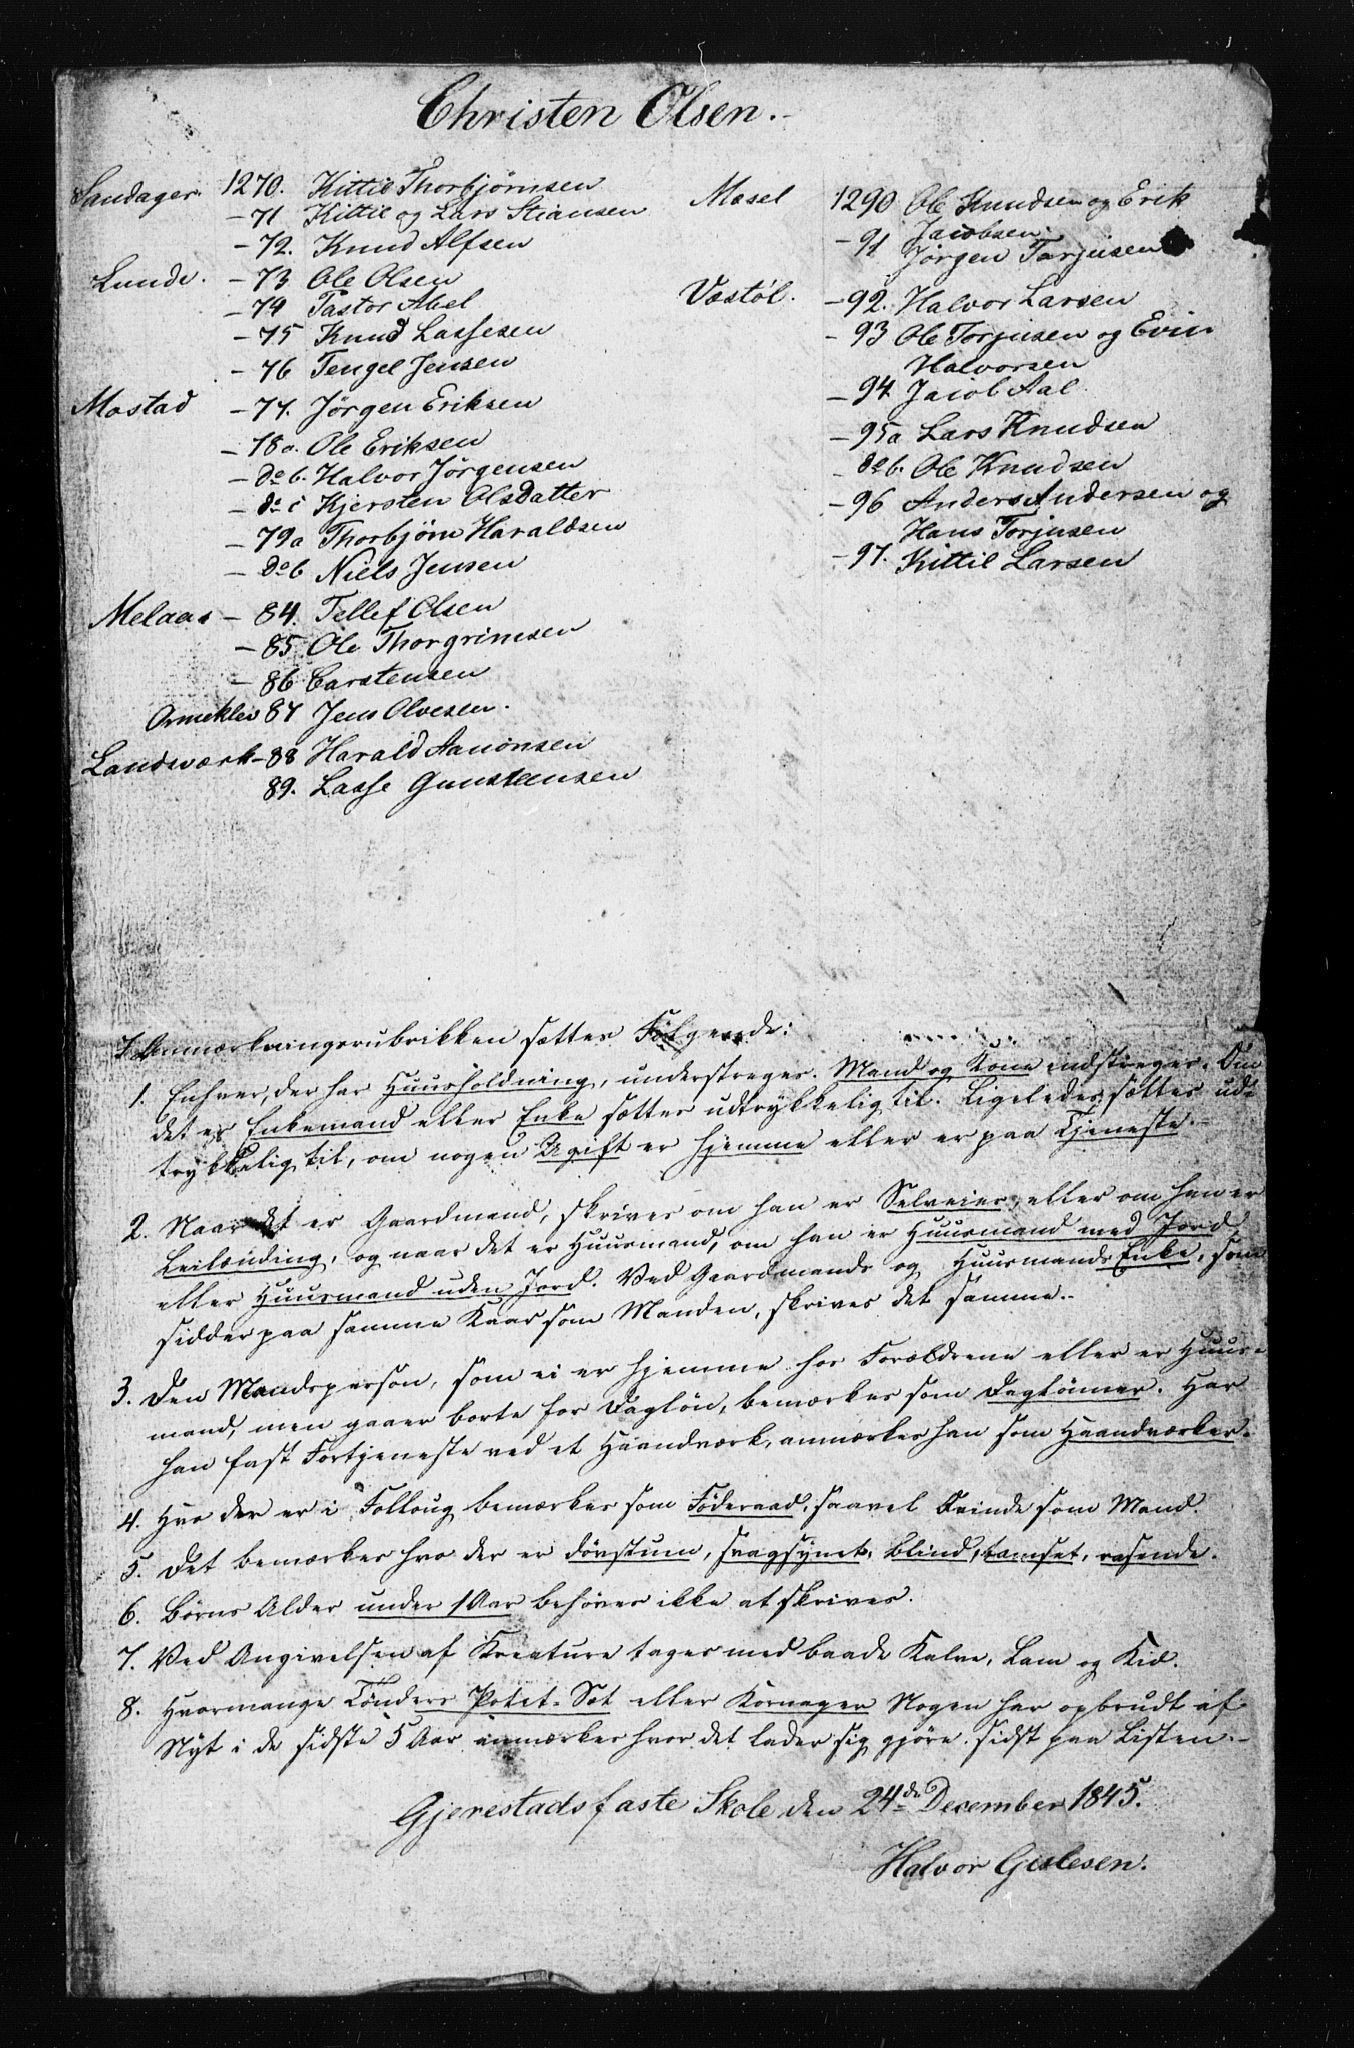 Christen Olsen.
Sandager. 1270. Kittil Thorbjørnsen
- 71 Kittil og Lars Stiansen
- 72. Knud Alfsen
Lunde. - 73 Ole Olsen
- 74 Pastor Abel
- 75 Knud Lassesen
- 76 Tengel Jensen
Mostad - 77. Jørgen Eriksen
- 78a. Ole Eriksen
- do b. Halvor Jørgensen
- do c Kjersten Olsdatter
- 79a Thorbjørn Haraldsen
- do b Niels Jensen
Melaas - 84. Tellef Olsen
- 85 Ole Thorgrimsen
- 86 Carstensen
Ormeklev 87 Jens Olvesen.
Landsværk - 88 Harald Aanonsen
89. Lasse Gunstensen
Mæsel 1290 Ole Knudsen og Erik
Jacobsen.
- 91 Jørgen Torjusen
Væstøl. - 92. Halvor Larsen
- 93 Ole Torjusen og Evin
Halvorsen
- 94 Jacob Aal
- 95a Lars Knudsen
- do b. Ole Knudsen
- 96 Anders Andersen og
Hans Torjusen
- 97. Kittil Larsen
I Anmærkningsrubrikken sættes Følgende:
1. Enhver, der har Huusholdning, understreges. Mand og Kone indstreges. Om
det er Enkemand eller Enke sættes udtrykkelig til. Ligeledes sættes ud-
trykkelig til, om nogen Ugift er hjemme eller er paa Tjeneste.-
2. Naar det er Gaardmand, skrives om han er Selveier, eller om han er
Leilænding, og naar det er Huusmand, om han er Huusmand med Jord
eller Huusmand uden Jord. Ved Gaardmands og Huusmands Enke, som
sidder paa samme Kaar som Manden, skrives det samme.-
3. Den Mandsperson, som ei er hjemme hos Forældrene eller er Huus-
mand, men gaaer borte for Dagløn, bemærkes som Daglønner. Har
han fast Fortjeneste ved et Haandværk, anmærkes han som Haandværker.
4. Hvo der er i Folloug bemærkes som Føderaad, saavel Kvinde som Mand.
5. Det bemærkes hvo der er døvstum, svagsynet, blind, tamset, rasende.
6. Børns Alder under 1 Aar behøves ikke at skrives.
7. Ved Angivelsen af Kreature tages med baade Kalve, Lam og Kid.
8. Hvormange Tønders Potet-Sæt eller Kornager Nogen har opbrudt af
Nyt i de sidste 5 Aar anmærkes hvor det lader sig gjøre sidst paa Listen.-
Gjerestads faste Skole den 24de December 1845.
Halvor Gislesen.